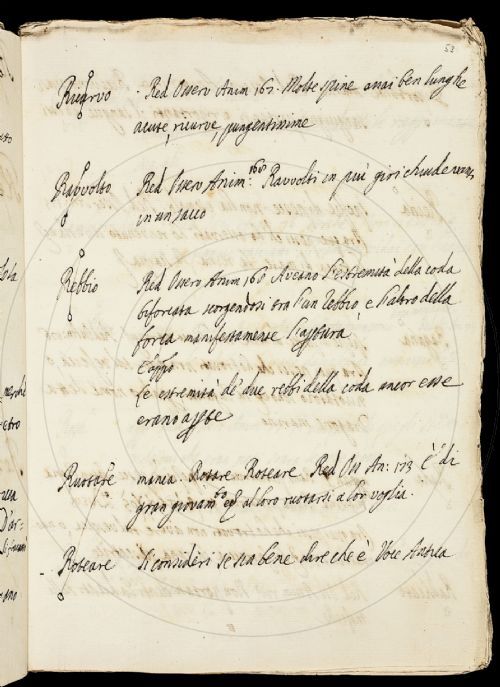 53
Ricurvo Red Osserv Anim 162. Molte spine assai ben lunghe
acute, ricurve, pungentissime
Ravvolto Red Osserv Anim. 160 Ravvolti in più giri chiude
in un sacco
Rebbio Red Osserv Anim 160 Aveano l'estremità della coda
biforcata scorgendosi tra l'un rebbio, e l'altro della
forca manifestamente l'apertura
E appo
Le estremità de' due rebbi della coda ancor esse
erano
Ruotare manca. Rotare Roteare Red Oss An: 173 È di
gran giovam.to al loro ruotarsi a lor voglia.
Roteare Si consideri se sta bene dire che è Voce Antica